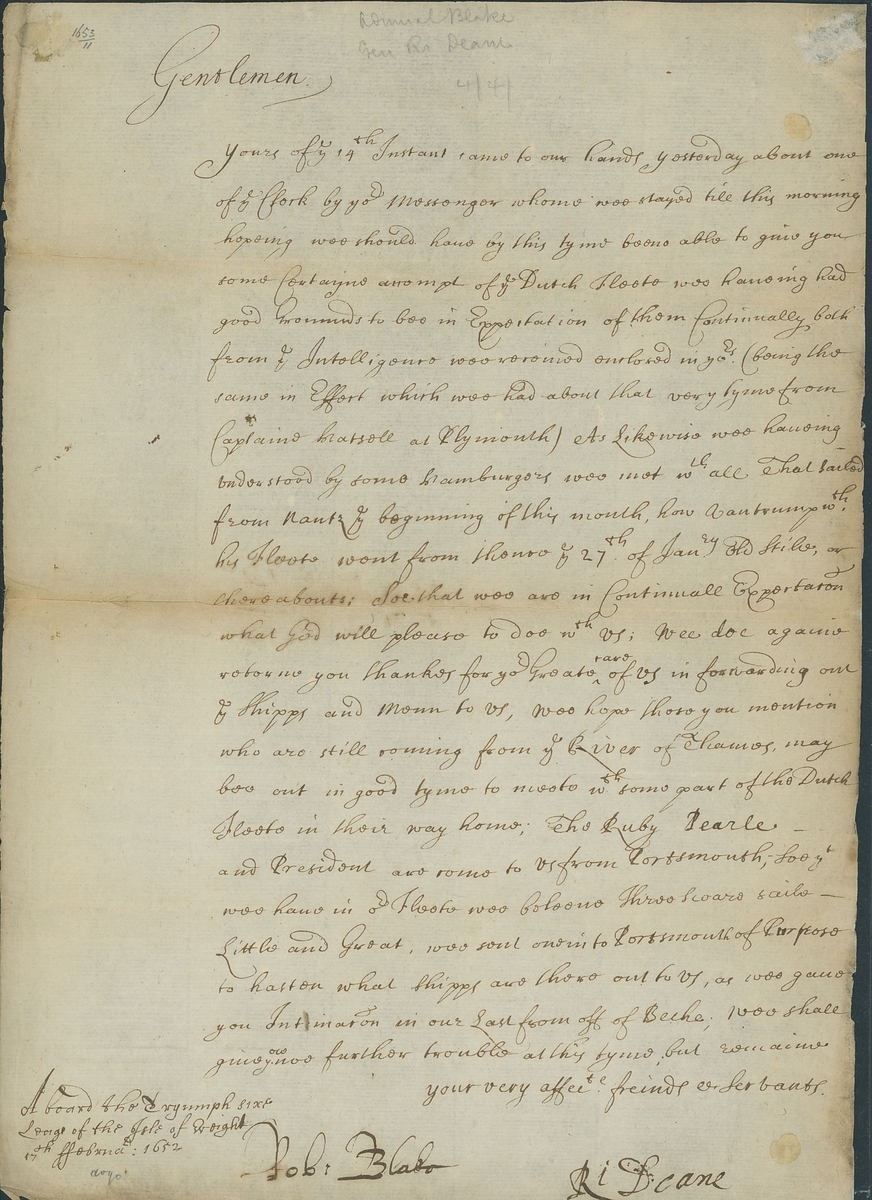 1653
11
Admiral Blake
Gen Ri Deane
4/4/
Gentlemen
Yours of yͤ 14th Instant came to our hands yesterday about one
of yͤ Clock by yoʳ Messenger whome wee stayed till this morning
hopeing wee should haue by this tyme beene able to giue you
some Certayne accompt of yͤ Dutch Fleete wee haueing had
good Grounds to bee in Expectation of them Continually, both
from yͤ Intelligence wee receiued enclosed in yoʳˢ. (being the
same in Effect which wee had about that very tyme from
Captaine Hatsell at Plymouth) As Likewise wee haueing
vnderstood by some Hamburgers wee met wth all That sailed
from Nantz yͤ beginning of this month, how Vantrump wth.
his Fleete went from thence yͤ 27th. of Janry Old Stile, or
thereabouts; Soe that wee are in Continuall Expectacōn
what God will please to doe wth vs; Wee doe againe
retorne you thankes for yoʳ Greate care of vs in forwarding out
yͤ Shipps and Menn to vs, wee hope those you mention
who are still coming from yͤ River of Thames, may
bee out in good tyme to meete wth some part of the Dutch
Fleete in their way home; The Ruby Pearle –
and President are come to vs from Portsmouth; Soe yᵗ
wee haue in oʳ Fleete wee beleeue Three Scoare saile –
Little and Great, wee sent one in to Portsmouth of Purpose
to hasten what Shipps are there out to vs, as wee gaue
you Intimacōn in our Last from off of Beche; wee shall
giue you noe further trouble at this tyme, but remaine
your very affecͭᵉ. freinds & Servants.
Aboard the Tryumph sixe
Leags of the Isle of Weight
17th ffebruaʳ: 1652
Rob: Blake
Ri Deane